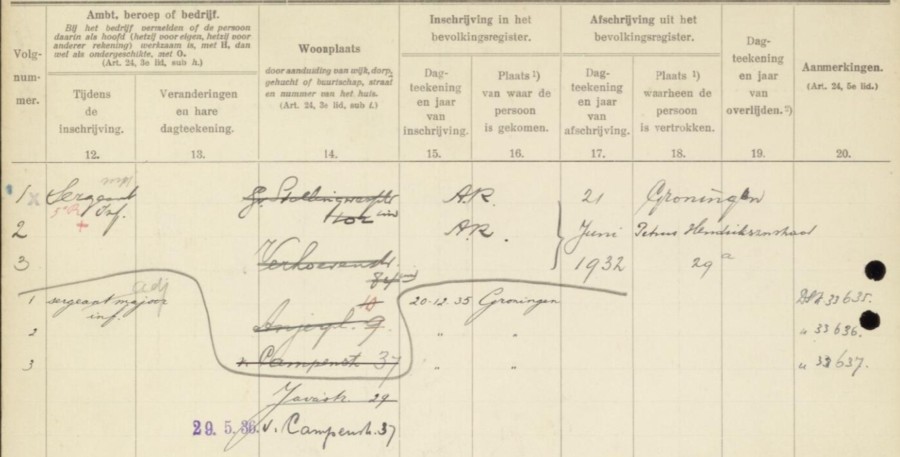 Volg-
num-
mer.
Ambt, beroep of bedrijf.
Bij het bedrijf vermelden of de persoon
daarin als hoofd (hetzij voor eigen, hetzij voor
anderer rekening) werkzaam is, met H, dan
wel als ondergeschikte, met O.
(Art. 24, 3e lid, sub h.)
Tijdens
de
inschrijving.
12.
Veranderingen
en hare
dagteekening.
13.
Woonplaats
door aanduiding van wijk, dorp,
gehucht of buurtschap, straat
en nummer van het huis.
(Art. 24, 3e lid, sub i.)
14.
Inschrijving in het
bevolkingsregister.
Dag-
teekening
en jaar
van
inschrijving.
15.
Plaats 1)
van waar de
persoon
is gekomen.
16.
Afschrijving uit het
bevolkingsregister.
Dag-
teekening
en jaar
van
afschrijving.
17.
Plaats 1)
waarheen de
persoon
is vertrokken.
18.
Dag-
teekening
en jaar
van
overlijden. 2)
19.
Aanmerkingen.
(Art. 24, 5e lid.)
20.
1 x Sergeant A.R. 21 Groningen
Inf.
2 A.R. Juni Petrus Hendrikszstraat
3 Verhoevenstr. 1932 29 a
84
adj
1 sergeant majoor 10 20-12-35 Groningen 33635.
inf.
2 Anjegl. 9 " " " 33636.
3 v. Campenstr. 37 " " " 33637.
Javastr. 29
29.5.36. v. Campenstr. 37